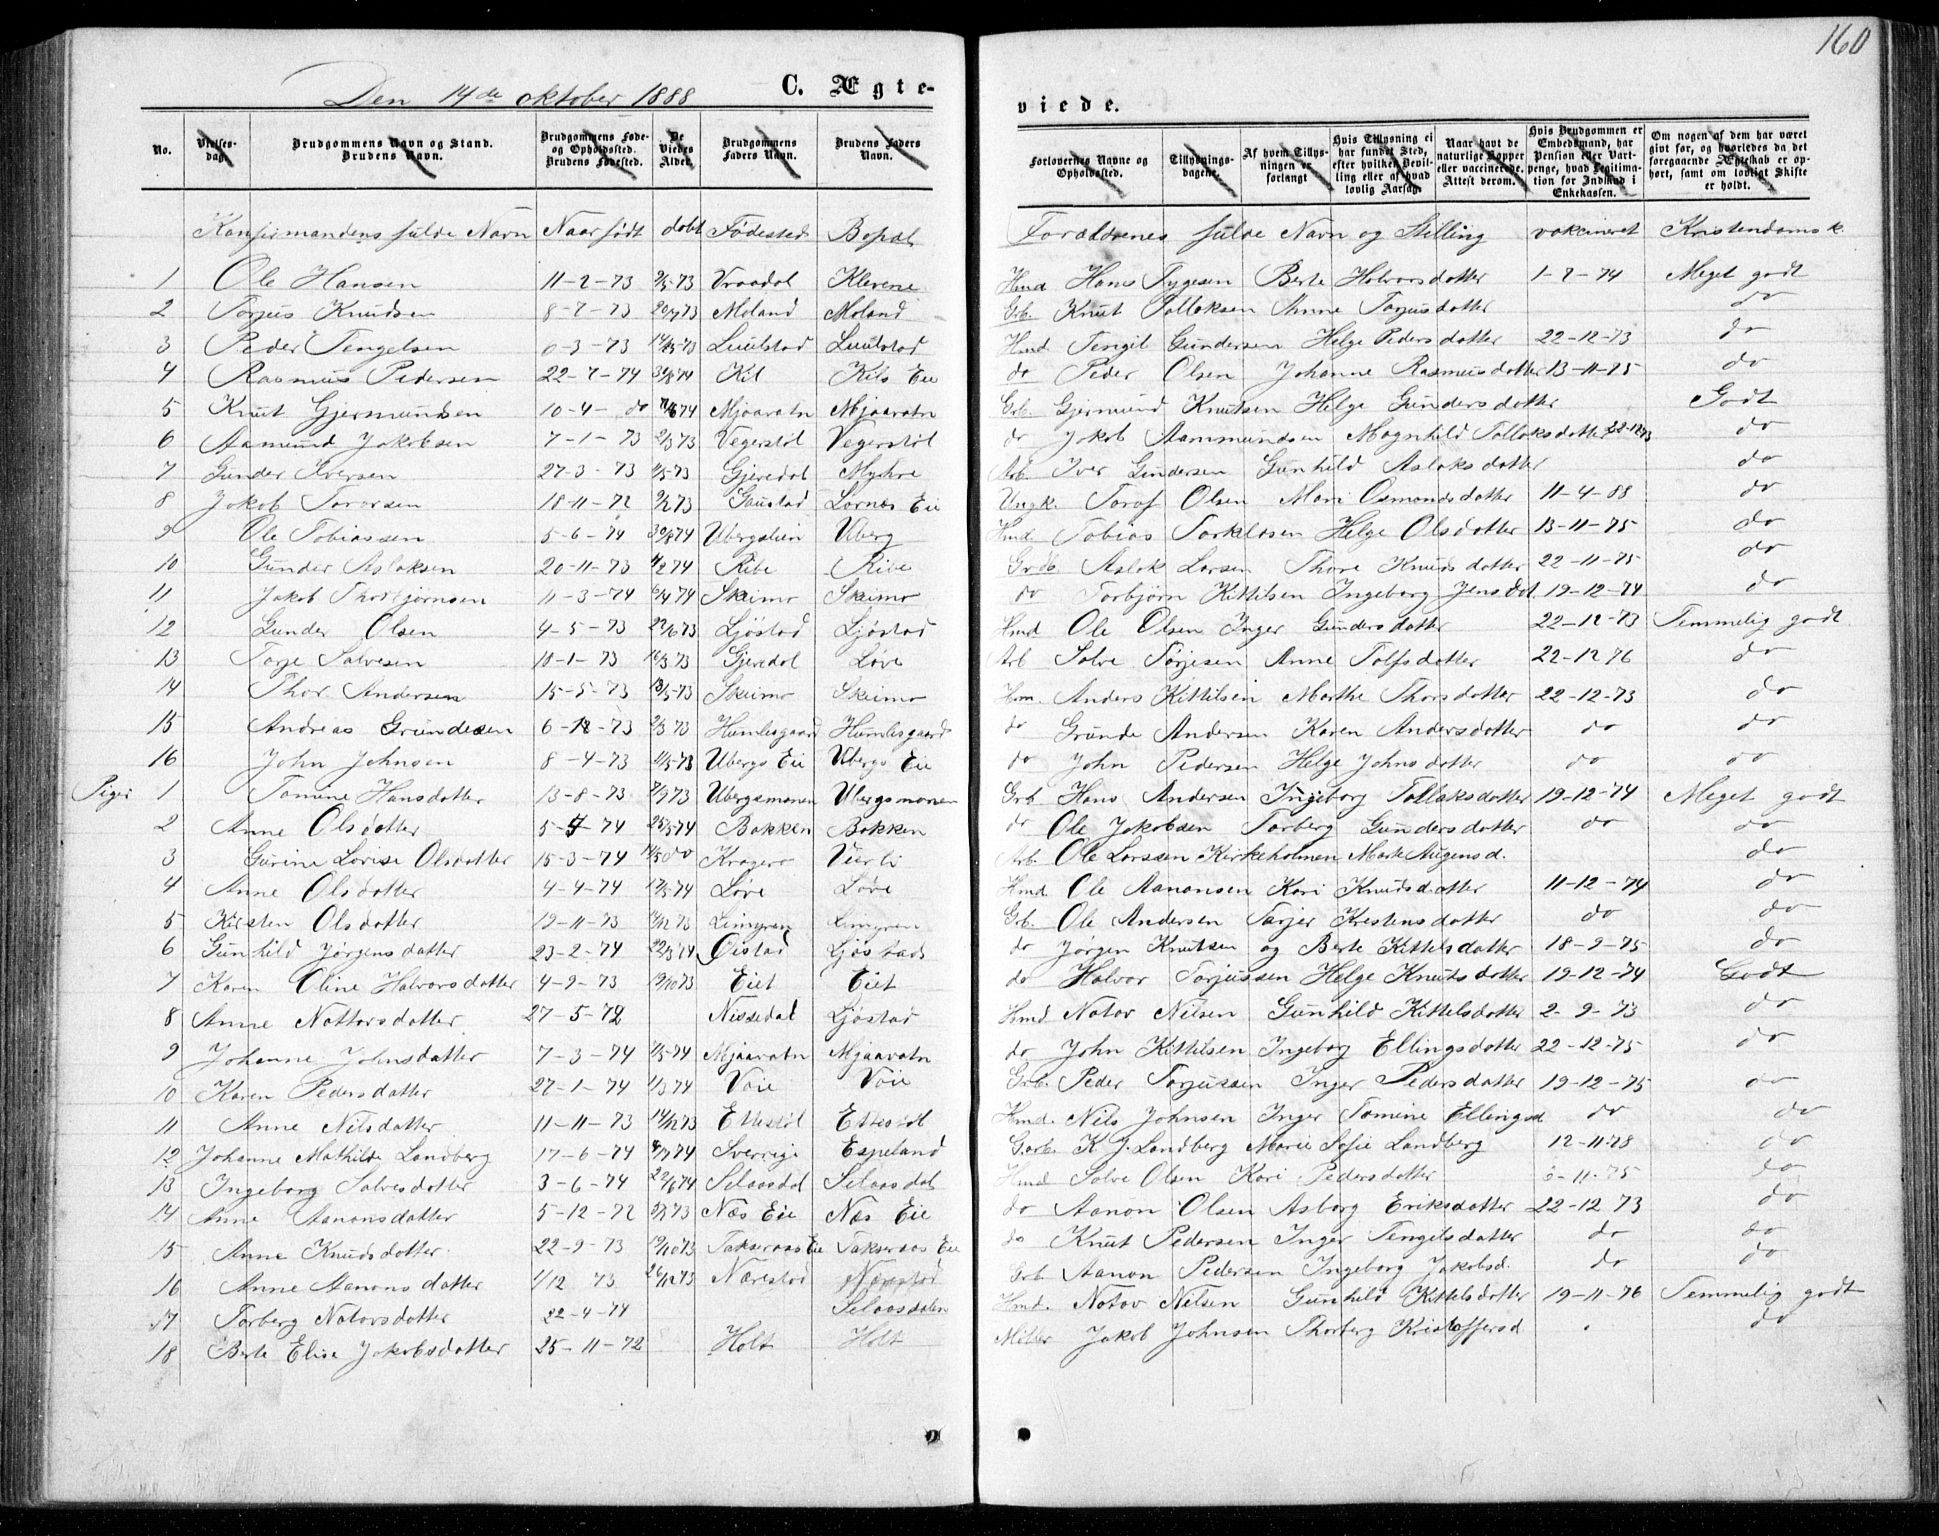 160
Den 14de oktober 1888 C. Ægte-
viede.
No. Vielses-dag. Brudgommens Navn og Stand. Brudens Navn. Brudgommens Føde- og Opholdssted. Brudens Fødested. De Viedes Alder. Brudgommens Faders Navn. Brudens Faders Navn.
Forlovernes Navne og Opholdssted. Tillysnings-dagene. Af hvem Tillysningen er forlangt Hvis Tillysning ei har fundet Sted, efter hvilken Bevilling eller af hvad lovlig Aarsag. Naar havt de naturlige Kopper eller vaccinerede. Attest derom. Hvis Brudgommen er Embedsmand, har Pension eller Vartpenge, hvad Legitimation for Indskud i Enkekassen. Om nogen af dem har været givt før, og hvorledes da det foregaaende Ægteskab er ophørt, samt om lovligt Skifte er holdt.
Konfirmandens fulde Navn Naar født døbt Fødested Bopæl Forældrenes fulde Navn og Stilling vakcineret Kristendomsk.
1 Ole Hansen 11-2-73 2/5-73 Vraadal Klevene Hmd Hans Tygesen Berte Halvorsdotter 1-7-74 Meget godt
2 Torjus Knudsen 8-7-73 20/7 73 Moland Moland Grb. Knut Tollaksen Anne Torjusdotter do
3 Peder Tengelsen 0-3-73 Luulstad Luulstad Hmd Tengil Gundersen Helge Pedersdotter 22-12-73 do
4 Rasmus Pedersen 22-7-74 Kil Kils Eie do Peder Olsen Johanne Rasmusdotter 13-11-75 do
5 Knut Gjermundsen 10-4- do Mjaavatn Mjaavatn Grb. Gjermund Knutsen Helge Gundersdotter Godt
6 Aamund Jakobsen 7-1-73 2/3 73 Vegerstøl Vegerstøl do Jakob Aammundsen Magnhild Tollaksdotter 22-12-73 do
7 Gunder Iversen 27-3-73 2/5-73 Gjeredal Myhre Arb. Iver Gundersen Gunhild Aslaksdotter do
8 Jakob Torafsen 18-11-72 2/2 73 Gaustad Lornæs Eie Ungk. Toraf Olsen Mari Osmondsdotter 11-4-88 do
9 Ole Tobiassen 5-6-74 30/8 74 Ubergslien Uberg Hmd. Tobias Torklasen Helge Olsdotter 13-11-75 do
10 Gunder Aslaksen 20-11-73 4/2 74 Ribe Ribe Grdb Aslak Larsen Thore Knudsdotter 22-11-75 do
11 Jakob Thorbjørnsen 11-3-74 6/4 74 Skeimo Skeimo do Torbjørn Kittilsen Ingeborg Jensdot 19-12-74 do
12 Gunder Olsen 4-5-73 22/6 73 Ljøstad Ljøstad Hmd Ole Olsen Inger Gundersdotter 22-12-73 Temmelig godt
13 Torje Salvesen 10-1-73 16/3 73 Gjeredal Løve Arb Salve Torjesen Anne Tolfsdotter 22-12 76 do
14 Thor Andersen 15-5-73 13/5-73 Skeimo Skeimo Hm. Anders Kittilsen Marthe Thorsdotter 22-12-73 do
15 Andreas Grundesen 6-12-73 2/3 73 Humlesgaard Humlesgaard do Grunde Andersen Karen Andersdotter do do
16 John Johnsen 8-4-73 Ubergs Eie Ubergs Eie do John Pedersen Helge Johnsdotter do do
Piger 1 Tomine Hansdotter 13-8-73 2/9 73 Ubergsmonen Ubergsmonen Grb Hans Andersen Ingeborg Tollaksdotter 19-12-74 Meget godt
2 Anne Olsdotter 5-4-74 25/5 74 Bakken Bakken do Ole Jakobsen Torberg Gundersdotter do do
3 Gurine Lovise Olsdotter 15-3-74 do Kragerø Vierli Arb. Ole Larssen Kirkeholmen Marte Augensd. do
4 Anne Olsdotter 4-4-74 17/5-74 Løve Løve Hmd Ole Aanonsen Kari Knudsdotter 11-12-74 do
5 Kirsten Olsdotter 19-11-73 Limyren Limyren Grb. Ole Andersen Tarjer Krestensdotter do do
6 Gunhild Jørgensdatter 23-2-74 22/3 74 Øistad Ljøstad do Jørgen Knutsen og Berte Kittelsdatter 18-9-75 do
7 Karen Oline Halvorsdotter 4-9-73 19/10 73 Eiet Eiet do Halvor Torjussen Helge Knutsdotter 19-12-74 Godt
8 Anne Nottorsdatter 27-5-72 Nissedal Ljøstad Hmd Notov Nilsen Gunhild Kittelsdotter 2-9-73 do
9 Johanne Johnsdatter 7-3-74 1/5-74 Mjaavatn Mjaavatn do John Kittilsen Ingeborg Ellingsdotter 22-12-75 do
10 Karen Pedersdatter 27-1-74 1/3 74 Voie Voie Grb. Peder Torjussen Inger Pedersdatter 19-12-75 do
11 Anne Nilsdatter 11-11-73 14/12 73 Ettestøl Ettestøl Hmd. Nils Johnsen Inger Tomine Ellingsd do do
12 Johanne Mathilde Landberg 17-6-74 Sverrige Espeland Grb. K J. Landberg Marie Sofie Landberg 12-11-78 do
13 Ingeborg Salvesdotter 3-6-74 22/6 74 Selaasdal Selaasdal Hmd Salve Olsen Kari Pedersdotter 6-11-75 do
14 Anne Aanonsdatter 5-12-72 Næs Eie Næs Eie do Aanon Olsen Asborg Eriksdatter 22-12 73 do
15 Anne Knudsdotter 22-9-73 19/10 73 Takseraas Eie Takseraas Eie do Knut Pedersen Inger Tengilsdatter do do
16 Anne Aanonsdatter 1/12 73 26/12 73 Nærestad Nærestad Grb Aanon Pedersen Ingeborg Jakobsd. do do
17 Torberg Notorsdotter 22-4-74 Selaasdalen Hmd. Notov Nilsen Gunhild Kittelsdotter 19-11-76 Temmelig godt
18 Berte Elise Jakobsdotter 25-11-72 Holt Holt Møller Jakob Johnsen Thorberg Kristoffersd do